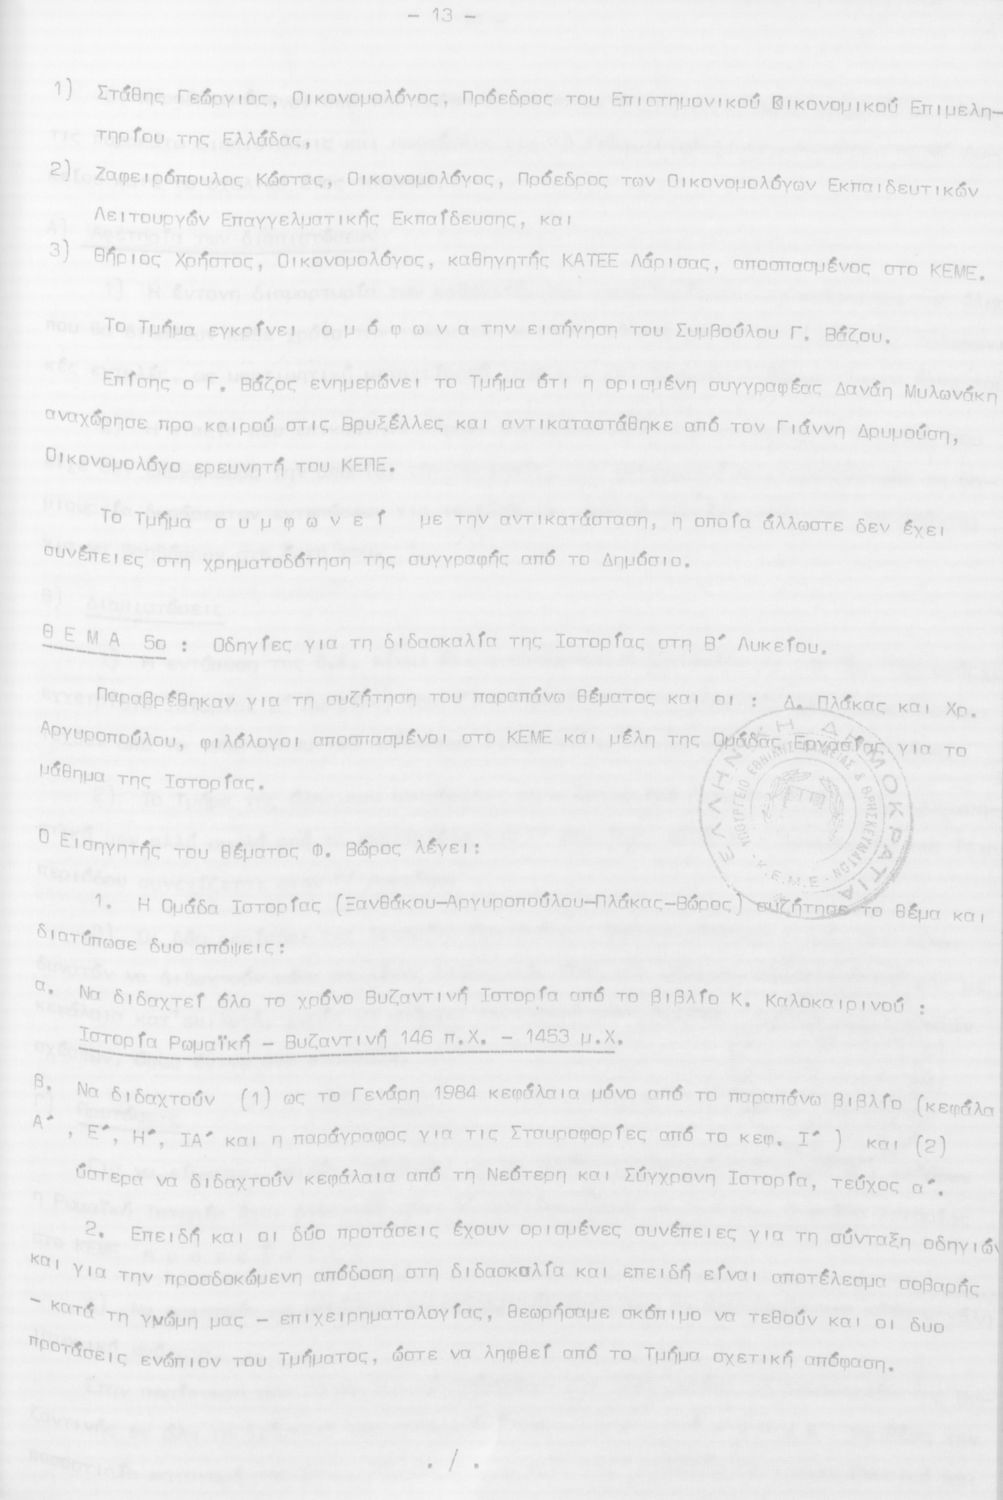 - 13 -
1) Στάθης Γεώργιος, Οικονομολόγος, Πρόεδρος του Επιστημονικού Οικονομικού Επιμελη-
τηρίου της Ελλάδας,
2) Ζαφειρόπουλος Κώστας, Οικονομολόγος, Πρόεδρος των Οικονομολόγων Εκπαιδευτικών
Λειτουργών Επαγγελματικής Εκπαίδευσης, και
3) Θήριος Χρήστος, Οικονομολόγος, καθηγητής ΚΑΤΕΕ Λάρισας, αποσπασμένος στο ΚΕΜΕ.
Το Τμήμα εγκρίνει ο μ ό φ ω ν α την εισήγηση του Συμβούλου Γ. Βάζου.
Επίσης ο Γ. Βάζος ενημερώνει το Τμήμα ότι η ορισμένη συγγραφέας Δανάη Μυλωνάκη
αναχώρησε προ καιρού στις Βρυξέλλες και αντικαταστάθηκε από τον Γιάννη Δρυμούση,
Οικονομολόγο ερευνητή του ΚΕΠΕ.
Το Τμήμα σ υ μ φ ω ν ε ί με την αντικατάσταση, η οποία άλλωστε δεν έχει
συνέπειες στη χρηματοδότηση της συγγραφής από το Δημόσιο.
Θ Ε Μ Α 5ο : Οδηγίες για τη διδασκαλία της Ιστορίας στη Β΄ Λυκείου.
Παραβρέθηκαν για τη συζήτηση του παραπάνω θέματος και οι : Δ. Πλάκας και Χρ.
Αργυροπούλου, φιλόλογοι αποσπασμένοι στο ΚΕΜΕ και μέλη της Ομάδας Εργασίας για το
μάθημα της Ιστορίας.
ΕΛΛΗΝΙΚΗ ΔΗΜΟΚΡΑΤΙΑ
ΥΠΟΥΡΓΕΙΟ ΕΘΝΙΚΗΣ ΠΑΙΔΕΙΑΣ & ΘΡΗΣΚΕΥΜΑΤΩΝ
- Κ.Ε.Μ.Ε -
Ο Εισηγητής του θέματος Φ. Βώρος λέγει:
1. Η Ομάδα Ιστορίας (Ξανθάκου-Αργυροπούλου-Πλάκας-Βώρος) συζήτησε το θέμα και
διατύπωσε δυο απόψεις:
α. Να διδαχτεί όλο το χρόνο Βυζαντινή Ιστορία από το βιβλίο Κ. Καλοκαιρινού :
Ιστορία Ρωμαϊκή - Βυζαντινή 146 π.Χ. - 1453 μ.Χ.
β. Να διδαχτούν (1) ως το Γενάρη 1984 κεφάλαια μόνο από το παραπάνω βιβλίο (κεφάλα
Α΄ , Ε΄, Η΄, ΙΑ΄ και η παράγραφος για τις Σταυροφορίες από το κεφ. Ι΄ ) και (2)
ύστερα να διδαχτούν κεφάλαια από τη Νεότερη και Σύγχρονη Ιστορία, τεύχος α΄.
2. Επειδή και οι δύο προτάσεις έχουν ορισμένες συνέπειες για τη σύνταξη οδηγιών
και για την προσδοκώμενη απόδοση στη διδασκαλία και επειδή είναι αποτέλεσμα σοβαρής
- κατά τη γνώμη μας - επιχειρηματολογίας, θεωρήσαμε σκόπιμο να τεθούν και οι δυο
προτάσεις ενώπιον του Τμήματος, ώστε να ληφθεί από το Τμήμα σχετική απόφαση.
. / .